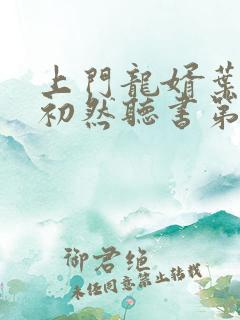 上門龍婿葉
初然聽書第
御君绝
未经同意禁止转载